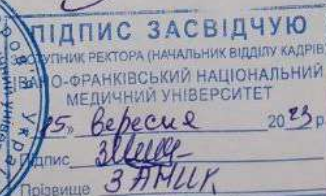 ПІДПИС ЗАСВІДЧУЮ
ЗАСТУПНИК РЕКТОРА (НАЧАЛЬНИК ВІДДІЛУ КАДРІВ)
ІВАНО-ФРАНКІВСЬКИЙ НАЦІОНАЛЬНИЙ
МЕДИЧНИЙ УНІВЕРСИТЕТ
25» вересня 2023 р.
Підпис
Прізвище ЗАМИК